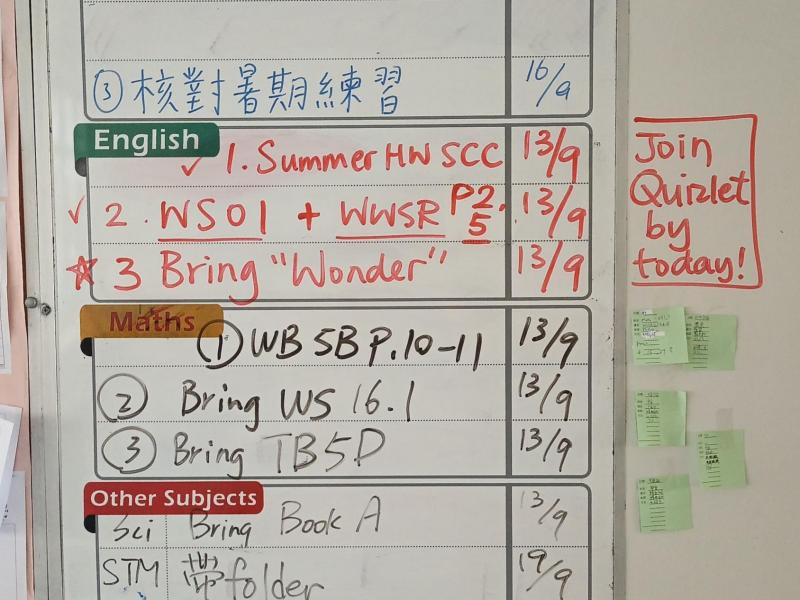 ③ 核對暑期練習 16/9
English
✓ 1. Summer HW SCC 13/9
✓ 2. WS01 + WWSR P2.5 13/9
☆ 3 Bring "Wonder" 13/9
Join
Quizlet
by
today!
Maths
① WB 5B P.10-11 13/9
② Bring WS 16.1 13/9
③ Bring TB5D 13/9
Other Subjects
Sci Bring Book A 13/9
STM 帶folder 19/9